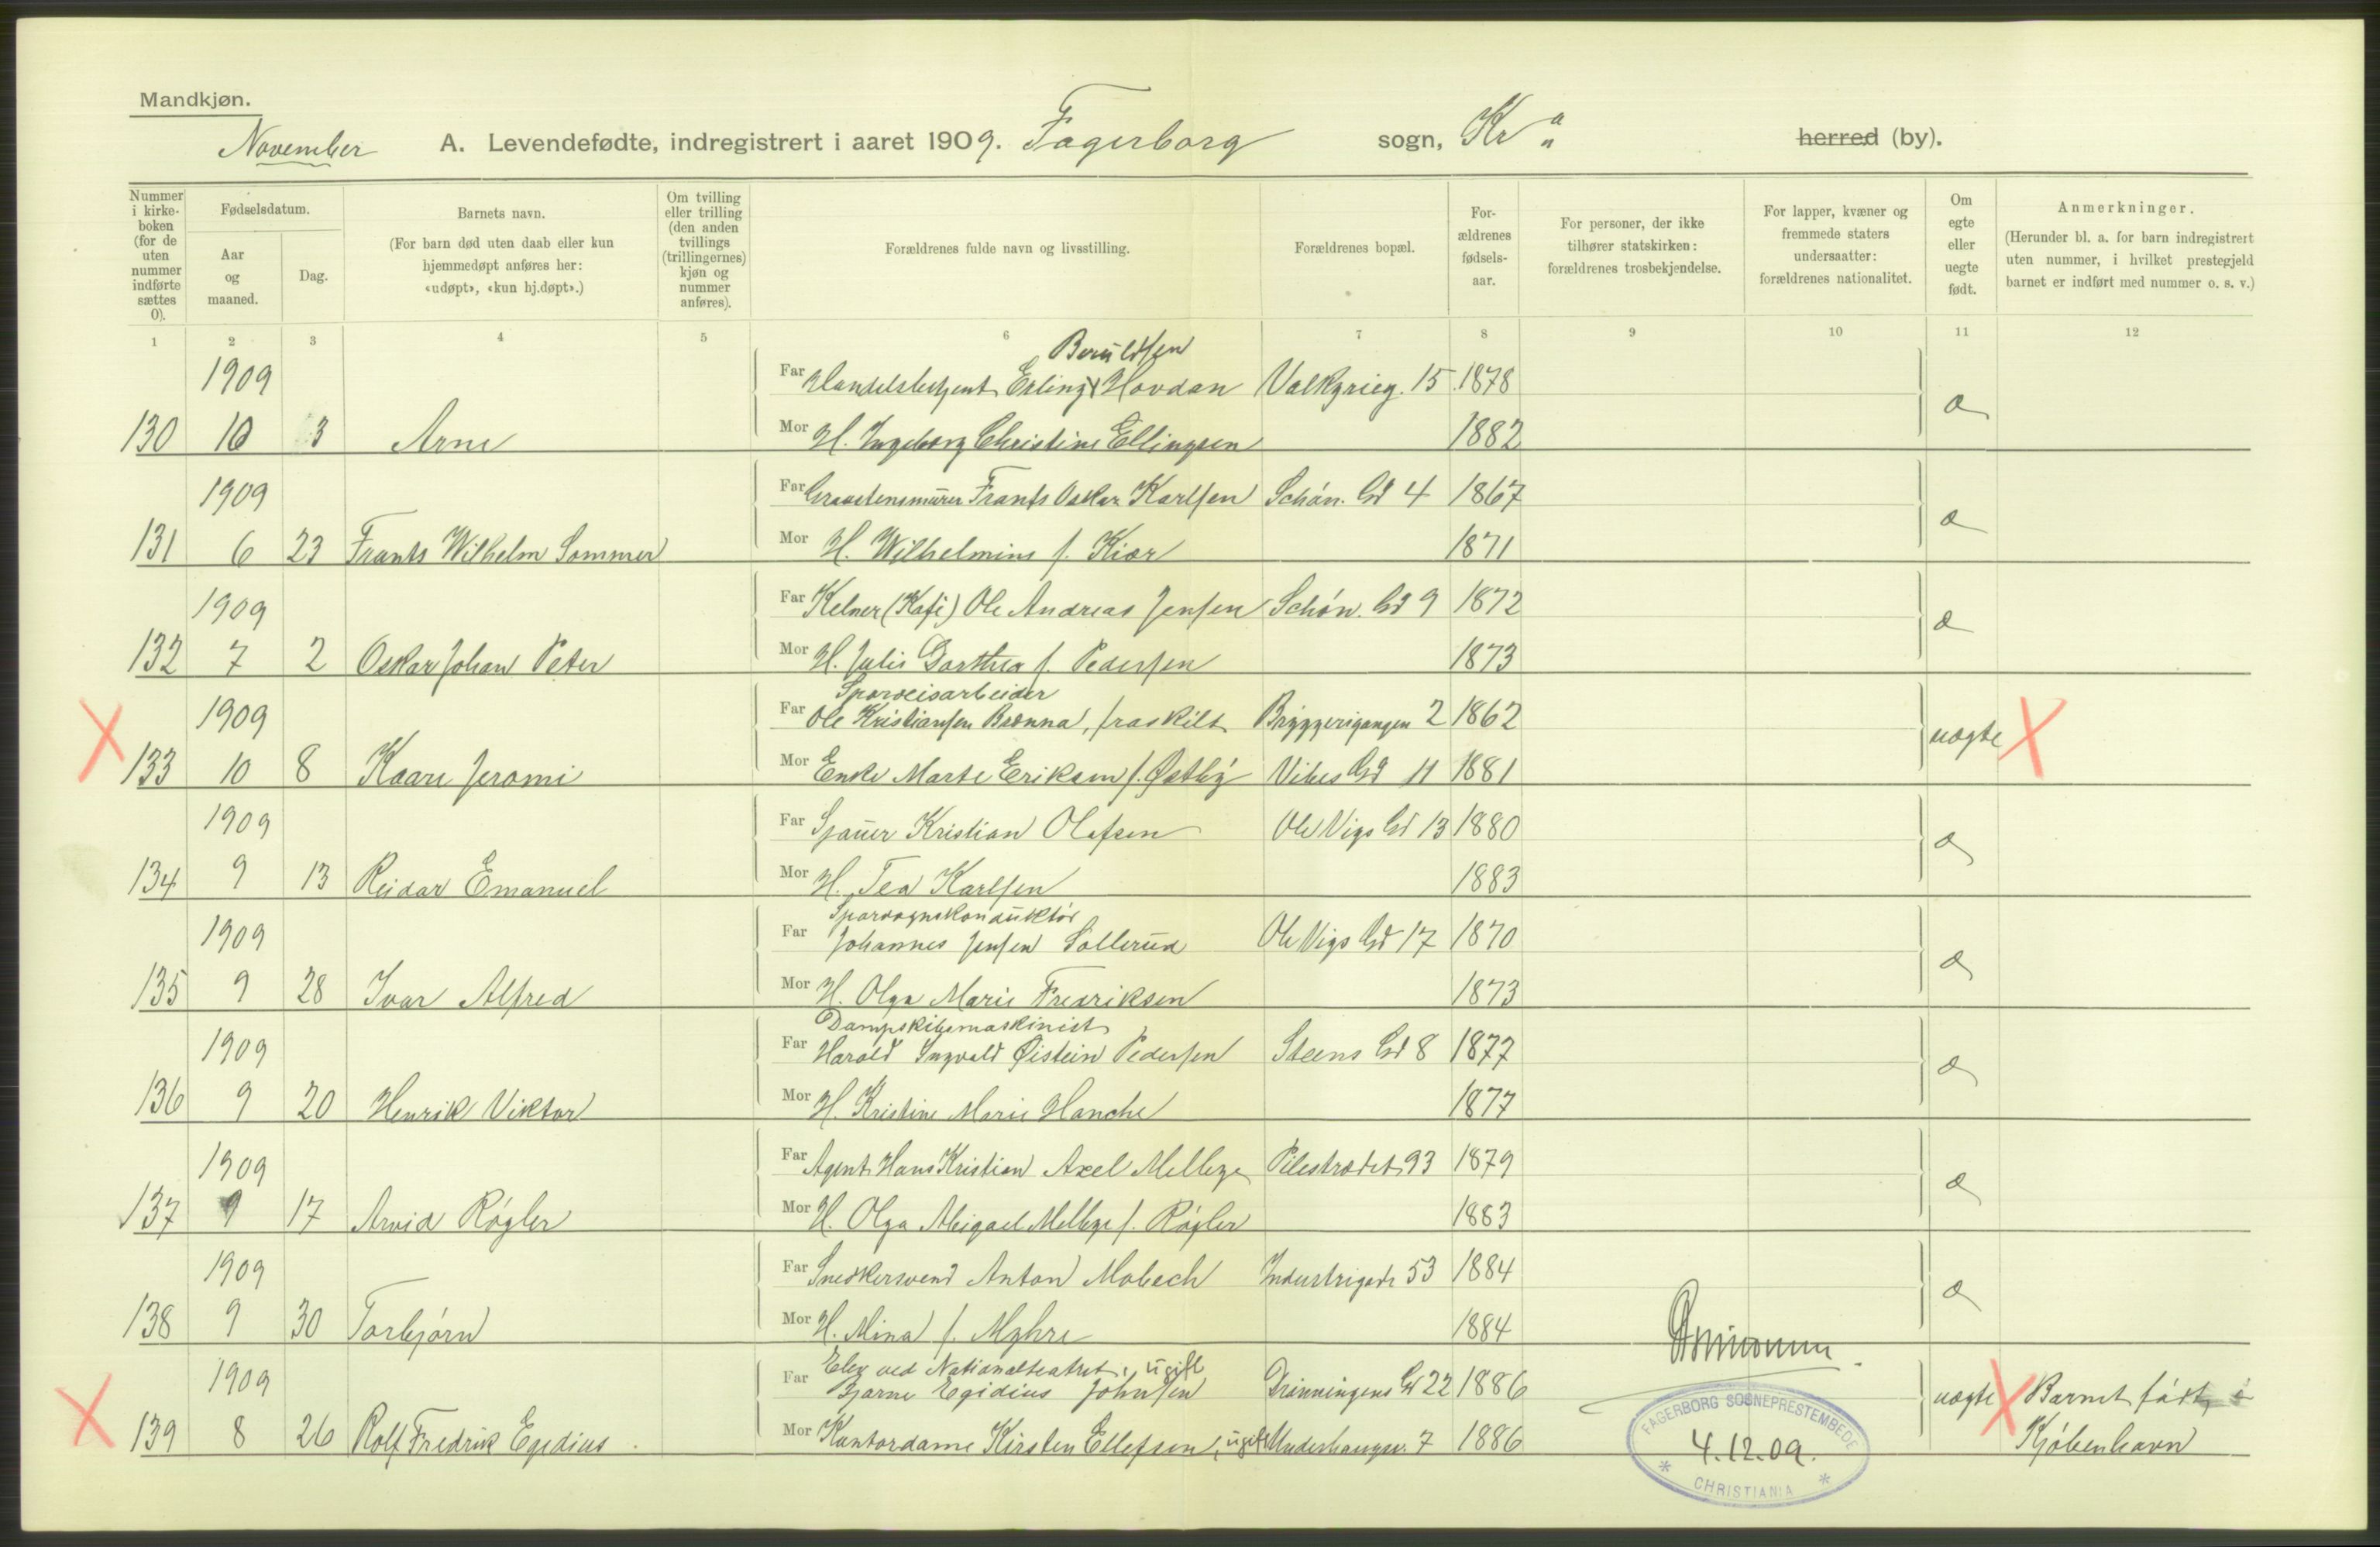 Mandkjøn.
November A. Levendefødte, indregistrert i aaret 1909. Fagerborg sogn, Kr a herred (by).
Nummer i kirke-boken (for de uten nummer indførte sættes 0).
Fødselsdatum.
Aar og maaned.
Dag.
Barnets navn.
(For barn død uten daab eller kun hjemmedøpt anføres her: «udøpt», «kun hj.døpt».)
Om tvilling eller trilling (den anden tvillings (trillingernes) kjøn og nummer anføres).
Forældrenes fulde navn og livsstilling.
Forældrenes bopæl.
For-ældrenes fødsels-aar.
For personer, der ikke tilhører statskirken: forældrenes trosbekjendelse.
For lapper, kvæner og fremmede staters undersaatter: forældrenes nationalitet.
Om egte eller uegte født.
Anmerkninger.
(Herunder bl. a. for barn indregistrert uten nummer, i hvilket prestegjeld barnet er indført med nummer o. s. v.)
1 2 3 4 5 6 7 8 9 10 11 12
Berüldsen
1909 Far Handelsbetjent Erling Hovdan Valkyrieg. 15 1878
130 10 3 Arne Mor H. Ingeborg Christine Ellingsen 1882 æ
1909 Far Frants Oskar Karlsen Schøn. Gd 4 1867
131 6 23 Frants Wilhelm Sommer Mor H. Wilhelmine f. Kiær 1871 æ
1909 Far Kelner (Kafé) Ole Andreas Jensen Schøn. Gd 9 1872
132 7 2 Oskar Johan Peter Mor H. Julie Dorthea f. Pedersen 1873 æ
Sporveisarbeider
1909 Far Ole Kristiansen Brenna, fraskilt Bryggerigangen 2 1862
133 10 8 Kaare Jeromi Mor Enke Marte Eriksen f. Østby Vibes Gd 11 1881 uægte
1909 Far Kristian Olafsen Ole Vigs Gd 13 1880
134 9 13 Reidar Emanuel Mor H. Tea Karlsen 1883 æ
Sporvognskonduktør
1909 Far Johannes Jensen Sollerud Ole Vigs Gd 17 1870
135 9 28 Ivar Alfred Mor H. Olga Marie Fredriksen 1873 æ
Dampskibsmaskinist
1909 Far Harald Ingvald Øistein Pedersen Steens Gd 8 1877
136 9 20 Henrik Viktor Mor H. Kristine Marie Hanche 1877 æ
1909 Far Agent Hans Kristian Axel Mellbye Pilestrædet 93 1879
137 9 17 Arvid Røgler Mor H. Olga Abigael Mellbye f. Røgler 1883 æ
1909 Far Snedkersvend Anton Mobech Industrigade 53 1884
138 9 30 Torbjørn Mor H. Mina f. Myhre 1884 æ
Elev ved Nationalteatret, ugift
1909 Far Bjarne Egidius Johnsen Dronningens Gd 22 1886
139 8 26 Rolf Fredrik Egedius. Mor Kontordame Kirsten Ellefsen, ugift Underhaugsv. 7 1886 uægte Barnet født i
Kjøbenhavn
FAGERBORG SOGNEPRESTEMBEDE
4.12.09.
* CHRISTIANIA *